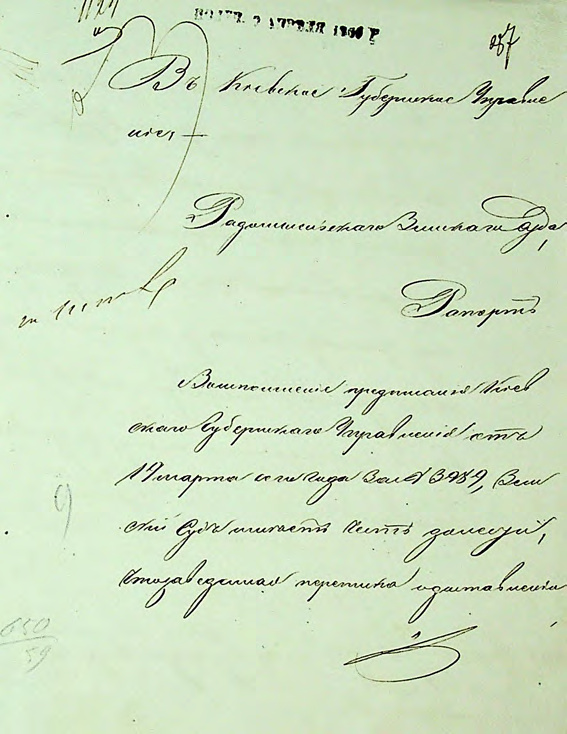 1124
ПОЛУЧ. 2 АПРЕЛЯ 1860 Г
287
Въ Кіевское Губернское Управле
ніе,
Радомысльскаго Земскаго Суда,
Рапортъ
Во исполненіе предписанія Кіев
скаго Губернскаго Управленія отъ
19 марта сего года за № 3989, Зем
скій Судъ имѣетъ честь донести,
что заведенная переписка о доставленіи
650
59